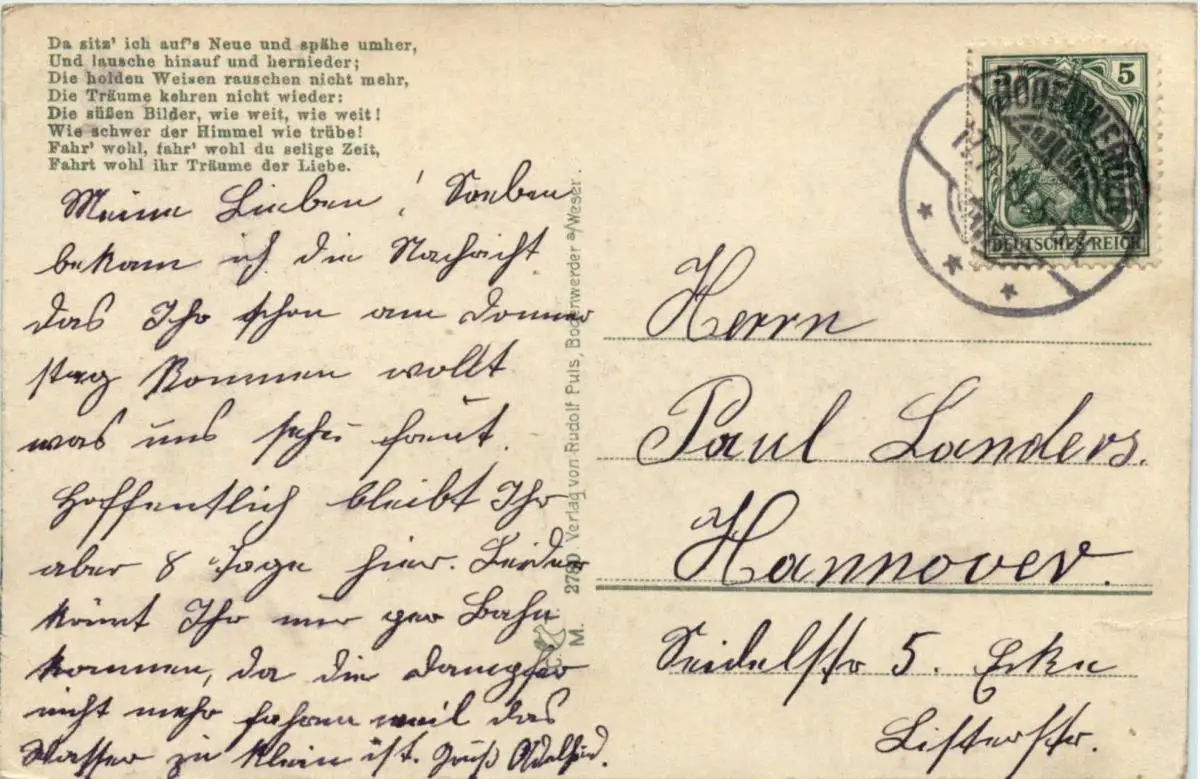 Da sitz' ich auf's Neue und spähe umher,
Und lausche hinauf und hernieder;
Die holden Weisen rauschen nicht mehr,
Die Träume kehren nicht wieder:
Die süßen Bilder, wie weit, wie weit!
Wie schwer der Himmel wie trübe!
Fahr' wohl, fahr' wohl du selige Zeit,
Fahrt wohl ihr Träume der Liebe.
Meine Lieben! Soeben
bekam ich die Nachricht
das Ihr schon am Donner
stag kommen wollt
was uns sehr freut.
Hoffentlich bleibt Ihr
aber 8 Tage hier. Leider
könnt Ihr nur per Bahn
kommen, da die Dampfer
nicht mehr fahren weil das
Wasser zu klein ist. Gruß
M. 2780 Verlag von Rudolf Puls, Bodenwerder a/Weser.
5 5
DEUTSCHES REICH
BODENWERDER
Herrn
Paul Landers.
Hannover.
Seidelstr 5. Ecke
Listerstr.